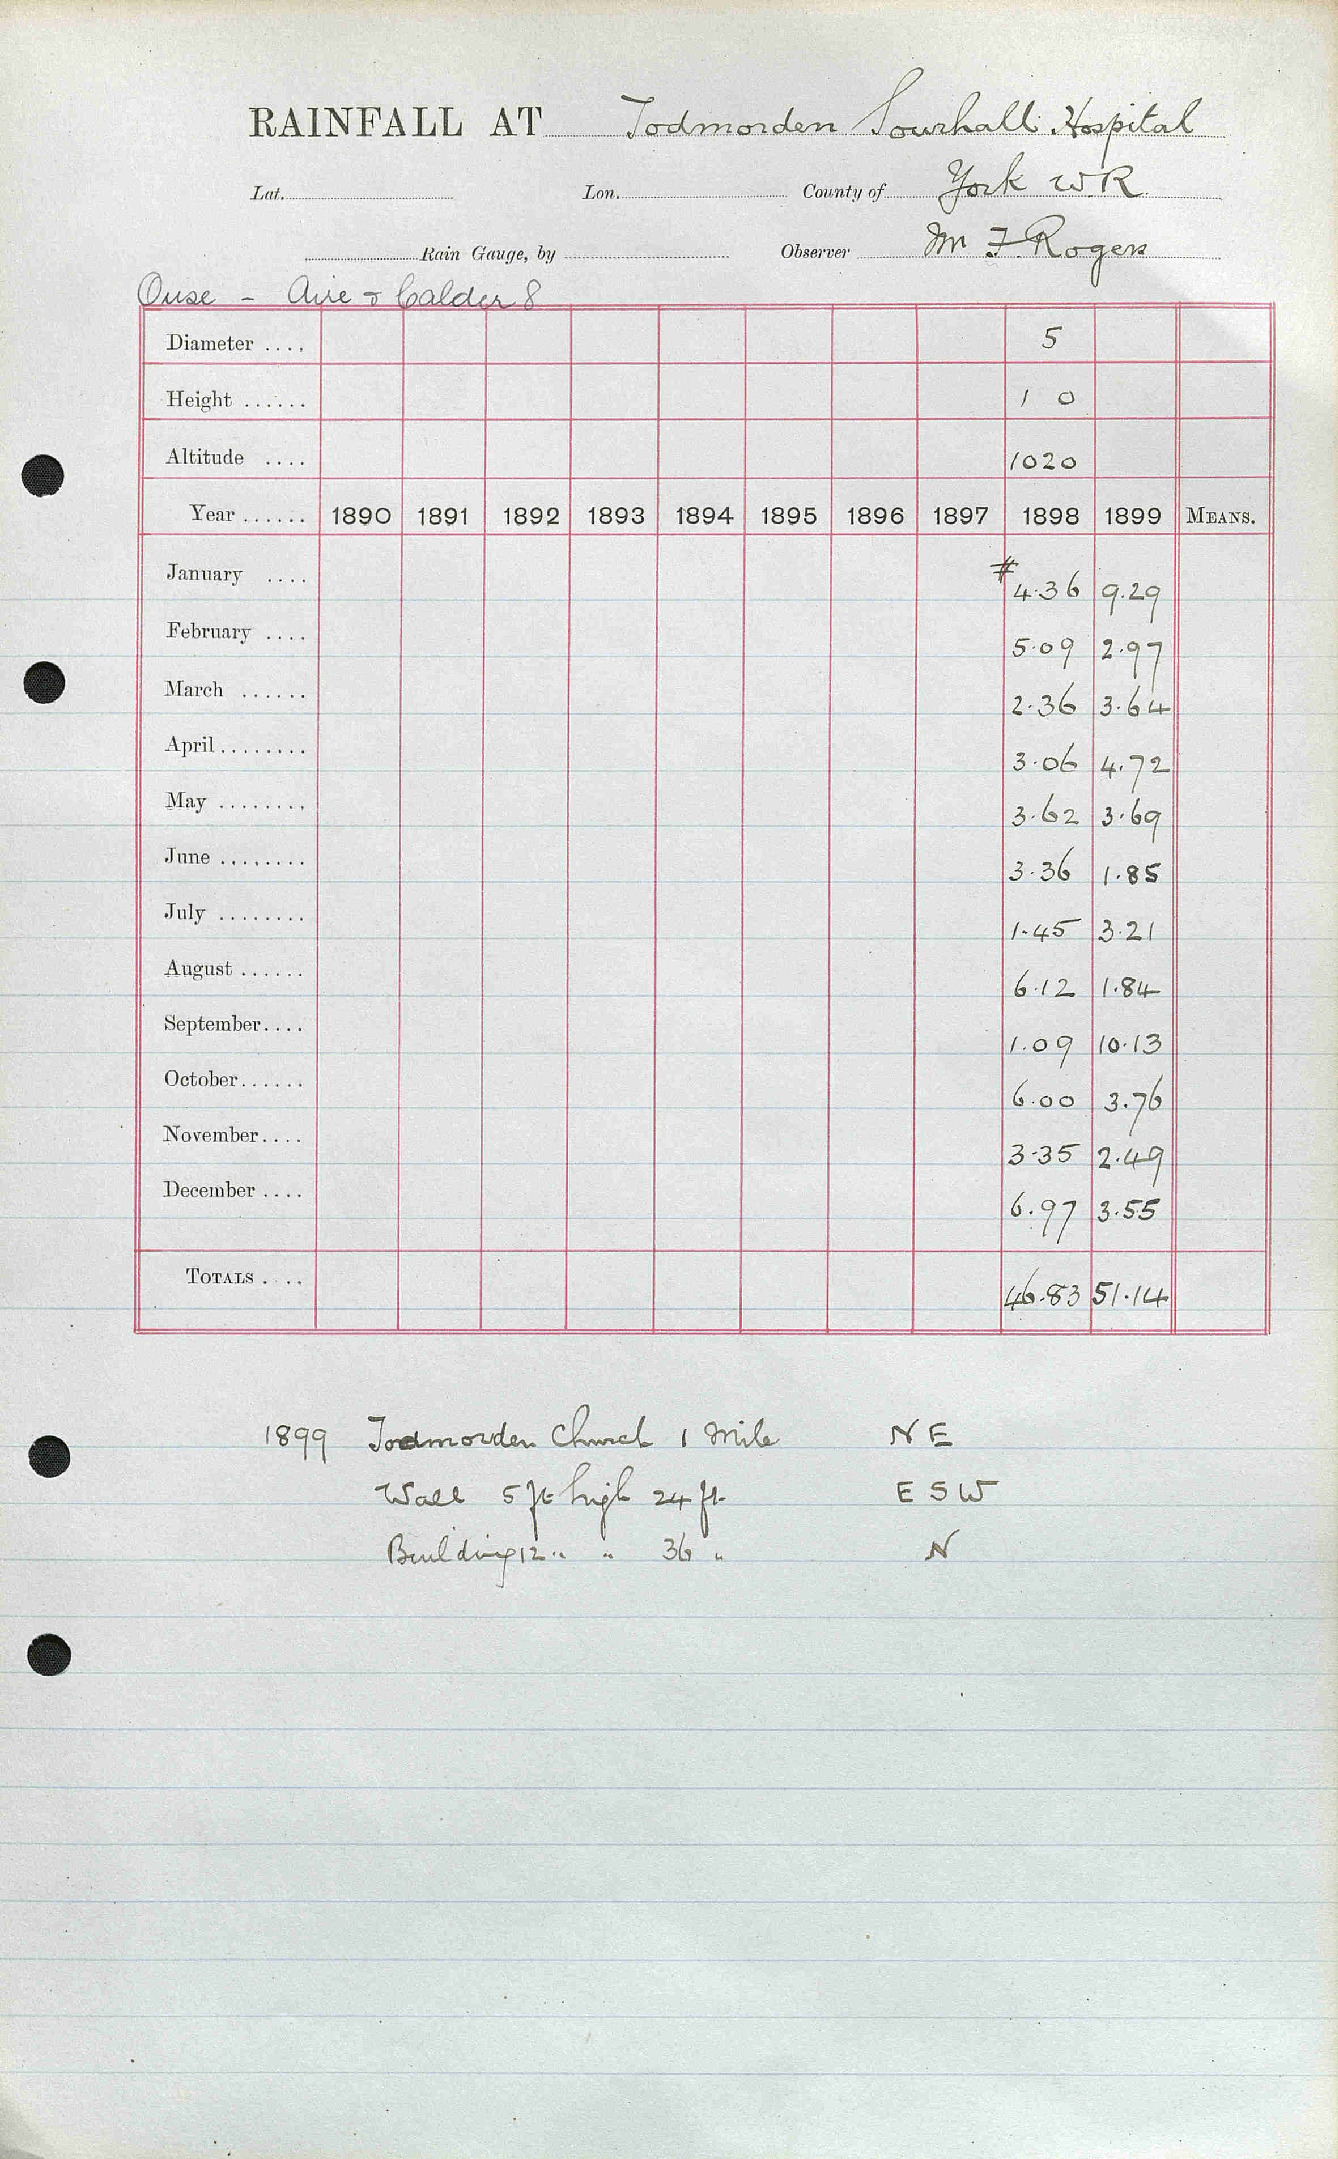 RAINFALL AT Todmorden Sourhall Hospital
Lat. Lon. County of York W R
Rain Gauge, by Observer Mr F Rogers
Ouse - Aire & Calder 8
Diameter .... 5
Height ...... 1 0
Altitude .... 1020
Year ...... 1890 1891 1892 1893 1894 1895 1896 1897 1898 1899 MEANS.
January .... # 4.36 9.29
February .... 5.09 2.97
March ...... 2.36 3.64
April ........ 3.06 4.72
May ........ 3.62 3.69
June ........ 3.36 1.85
July ........ 1.45 3.21
August ...... 6.12 1.84
September.... 1.09 10.13
October...... 6.00 3.76
November.... 3.35 2.49
December .... 6.97 3.55
TOTALS .... 46.83 51.14
1899 Todmorden Church 1 Mile NE
Wall 5 ft high 24 ft. E S W
Building 12 " " 36 " N